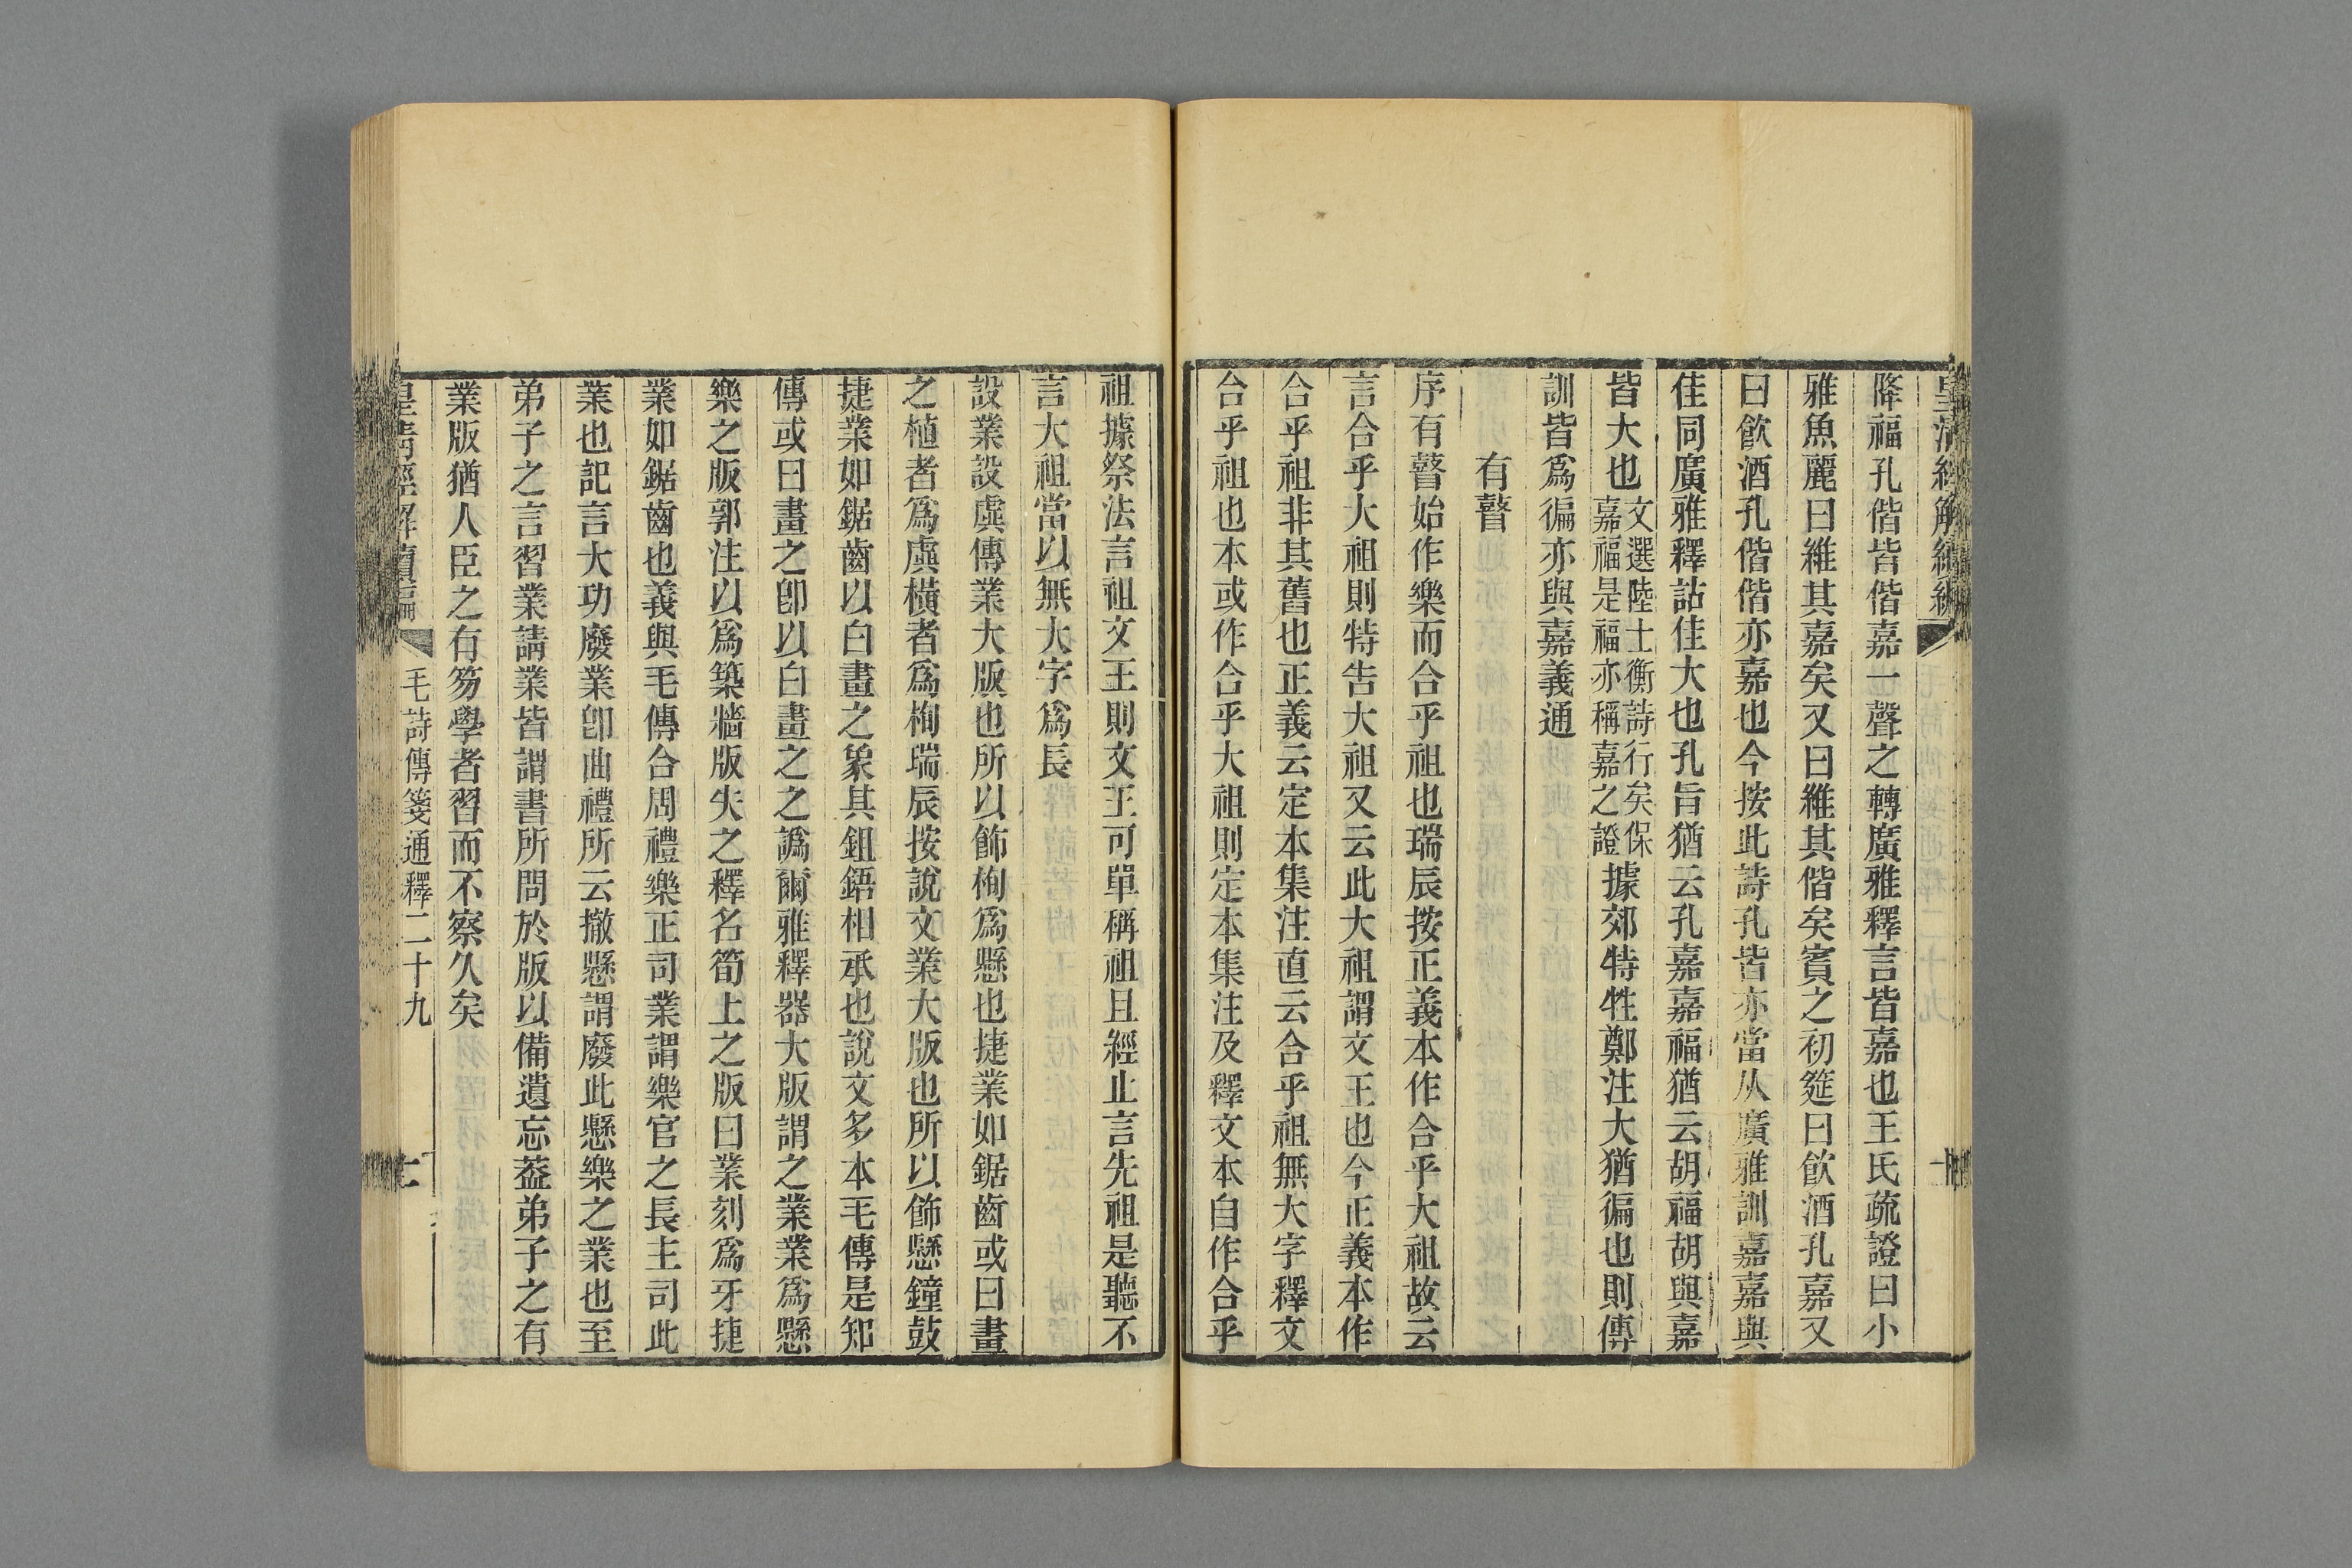 降福孔偕皆偕嘉一聲之轉廣雅釋言皆嘉也王氏疏證曰小
雅魚麗曰維其嘉矣又曰維其偕矣賓之初筵曰飮酒孔嘉又
曰飮酒孔偕偕亦嘉也今按此詩孔皆亦當从廣雅訓嘉嘉與
佳同廣雅釋詁佳大也孔旨猶云孔嘉嘉福猶云胡福胡與嘉
皆大也文選陸士衡詩行矣保嘉福是福亦稱嘉之證據郊特牲鄭注大猶徧也則傳
訓皆爲徧亦與嘉義通
有瞽
序有瞽始作樂而合乎祖也瑞辰按正義本作合乎大祖故云
言合乎大祖則特告大祖又云此大祖謂文王也今正義本作
合乎祖非其舊也正義云定本集注直云合乎祖無大字釋文
合乎祖也本或作合乎大祖則定本集注及釋文本自作合乎
祖據祭法言祖文王則文王可單稱祖且經止言先祖是聽不
言大祖當以無大字爲長
設業設虡傳業大版也所以飾栒爲懸也捷業如鋸齒或曰畫
之植者爲虡橫者爲栒瑞辰按說文業大版也所以飾懸鐘鼓
捷業如鋸齒以白畫之象其鉏鋙相承也說文多本毛傳是知
傳或曰畫之卽以白畫之之譌爾雅釋器大版謂之業業爲懸
樂之版郭注以爲築牆版失之釋名筍上之版曰業刻爲牙捷
業如鋸齒也義與毛傳合周禮樂正司業謂樂官之長主司此
業也記言大功廢業卽曲禮所云撤懸謂廢此懸樂之業也至
弟子之言習業請業皆謂書所問於版以備遺忘葢弟子之有
業版猶人臣之有笏學者習而不察久矣
皇淸經解續編
毛詩傳箋通釋二十九